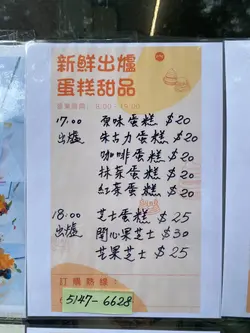 新鮮出爐
蛋糕甜品
17:00 原味蛋糕 $20
出爐 朱古力蛋糕 $20
咖啡蛋糕 $20
抹茶蛋糕 $20
紅茶蛋糕 $20
18:00 芝士蛋糕 $25
出爐 開心果芝士 $30
芒果芝士 $25
訂購熱線:
5147-6628